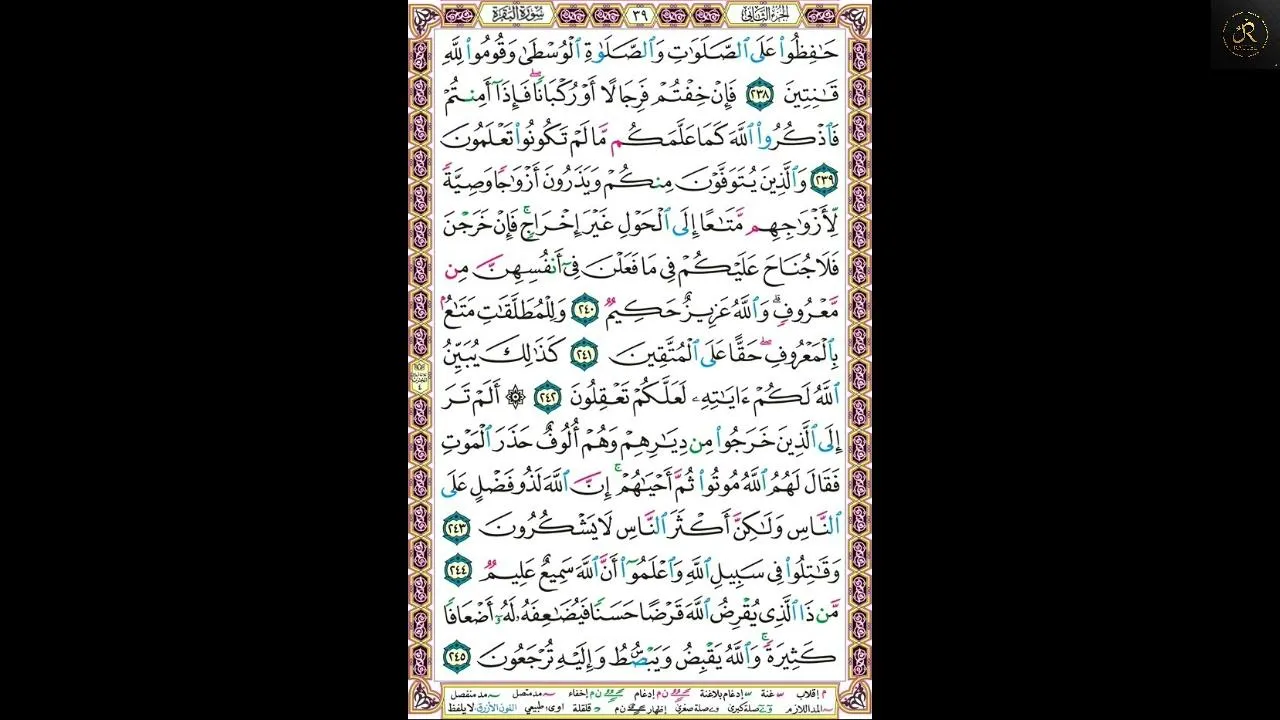 الجزء الثاني
٣٩
سورة البقرة
حَـٰفِظُوا۟ عَلَى ٱلصَّلَوَٰتِ وَٱلصَّلَوٰةِ ٱلْوُسْطَىٰ وَقُومُوا۟ لِلَّهِ
قَـٰنِتِينَ ٢٣٨ فَإِنْ خِفْتُمْ فَرِجَالًا أَوْ رُكْبَانًا ۖ فَإِذَآ أَمِنتُمْ
فَٱذْكُرُوا۟ ٱللَّهَ كَمَا عَلَّمَكُم مَّا لَمْ تَكُونُوا۟ تَعْلَمُونَ
٢٣٩ وَٱلَّذِينَ يُتَوَفَّوْنَ مِنكُمْ وَيَذَرُونَ أَزْوَٰجًا وَصِيَّةً
لِّأَزْوَٰجِهِم مَّتَـٰعًا إِلَى ٱلْحَوْلِ غَيْرَ إِخْرَاجٍ ۚ فَإِنْ خَرَجْنَ
فَلَا جُنَاحَ عَلَيْكُمْ فِى مَا فَعَلْنَ فِىٓ أَنفُسِهِنَّ مِن
مَّعْرُوفٍ ۗ وَٱللَّهُ عَزِيزٌ حَكِيمٌ ٢٤٠ وَلِلْمُطَلَّقَـٰتِ مَتَـٰعٌۢ
بِٱلْمَعْرُوفِ ۖ حَقًّا عَلَى ٱلْمُتَّقِينَ ٢٤١ كَذَٰلِكَ يُبَيِّنُ
ٱللَّهُ لَكُمْ ءَايَـٰتِهِۦ لَعَلَّكُمْ تَعْقِلُونَ ٢٤٢ ۞ أَلَمْ تَرَ
إِلَى ٱلَّذِينَ خَرَجُوا۟ مِن دِيَـٰرِهِمْ وَهُمْ أُلُوفٌ حَذَرَ ٱلْمَوْتِ
فَقَالَ لَهُمُ ٱللَّهُ مُوتُوا۟ ثُمَّ أَحْيَـٰهُمْ ۚ إِنَّ ٱللَّهَ لَذُو فَضْلٍ عَلَى
ٱلنَّاسِ وَلَـٰكِنَّ أَكْثَرَ ٱلنَّاسِ لَا يَشْكُرُونَ ٢٤٣
وَقَـٰتِلُوا۟ فِى سَبِيلِ ٱللَّهِ وَٱعْلَمُوٓا۟ أَنَّ ٱللَّهَ سَمِيعٌ عَلِيمٌ ٢٤٤
مَّن ذَا ٱلَّذِى يُقْرِضُ ٱللَّهَ قَرْضًا حَسَنًا فَيُضَـٰعِفَهُۥ لَهُۥٓ أَضْعَافًا
كَثِيرَةً ۚ وَٱللَّهُ يَقْبِضُ وَيَبْصُۜطُ وَإِلَيْهِ تُرْجَعُونَ ٢٤٥
م إقلاب غنة إدغام بلاغنة ن م إدغام ن م إخفاء مد متصل مد منفصل
المد اللازم صلة كبرى صلة صغرى إظهار ن م قلقلة اوى، طبيعي اللون الأزرق لا يلفظ